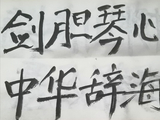 剑胆琴心
中华辞海